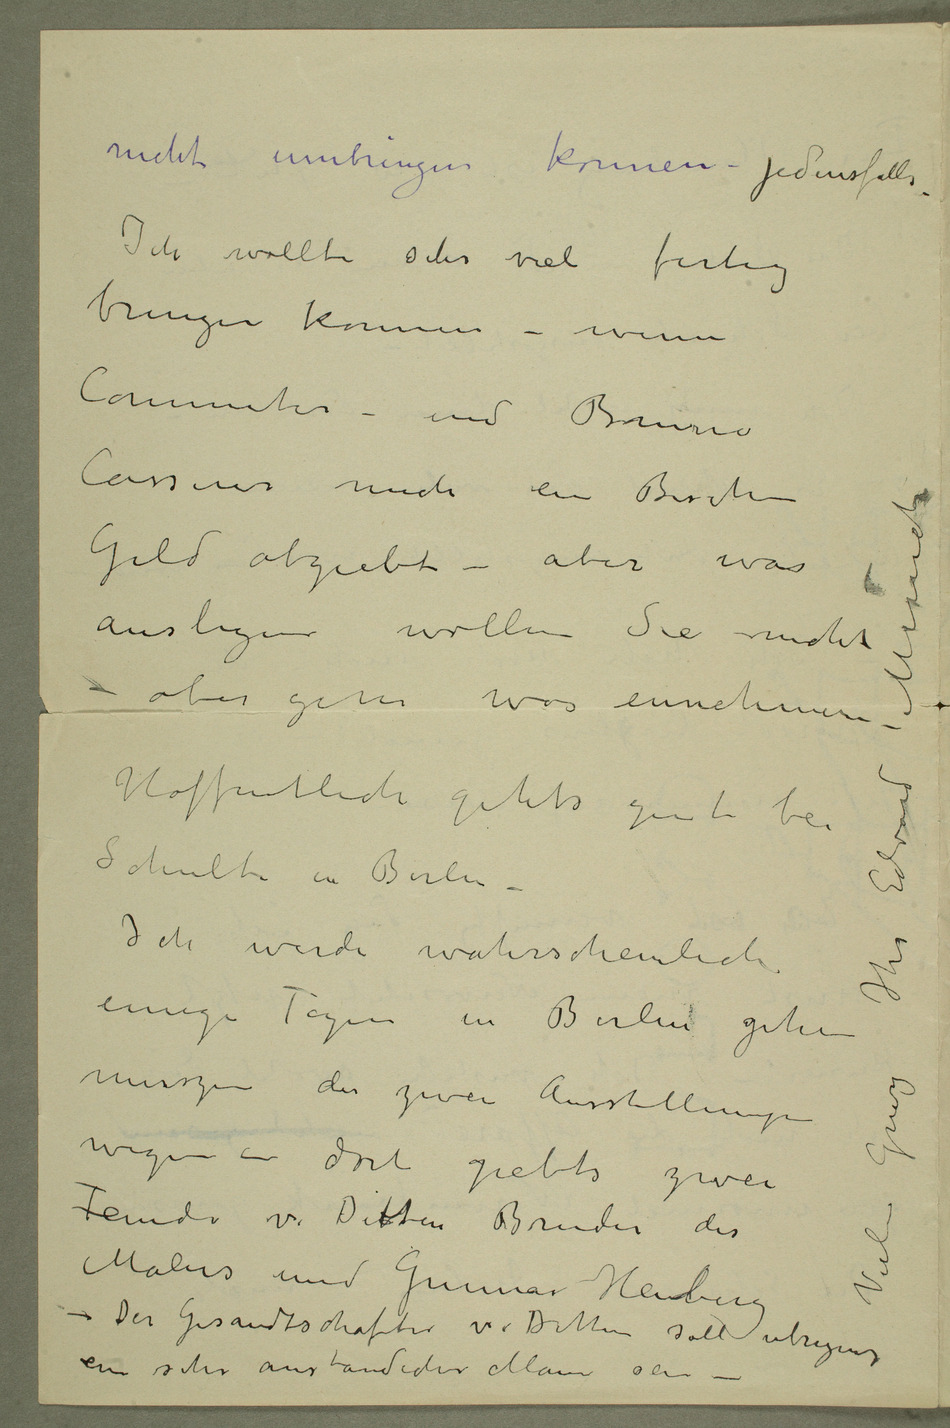 nicht umbringen können – jedensfalls.
Ich wollte sehr viel fertig
bringen können – wenn
Commeter – und Bruno
Cassirer mich ein Bischen
Geld abgiebt – aber was
auslegen wollen Sie nicht
– aber gern was einnehmen –
Hoffentlich gehts gut bei
Schulte in Berlin –
Ich werde wahrscheinlich
einige Tagen in Berlin gehen
muszen der zwei Ausstellungen
wegen – dort giebts zwei
Feinde v. Ditten Bruder des
Malers und Gunnar Heiberg
– Der Gesandtschafter v. Ditten soll ubrigens
ein sehr anstandicher Mann sein –
Viele Grusz Ihr Edvard Munch